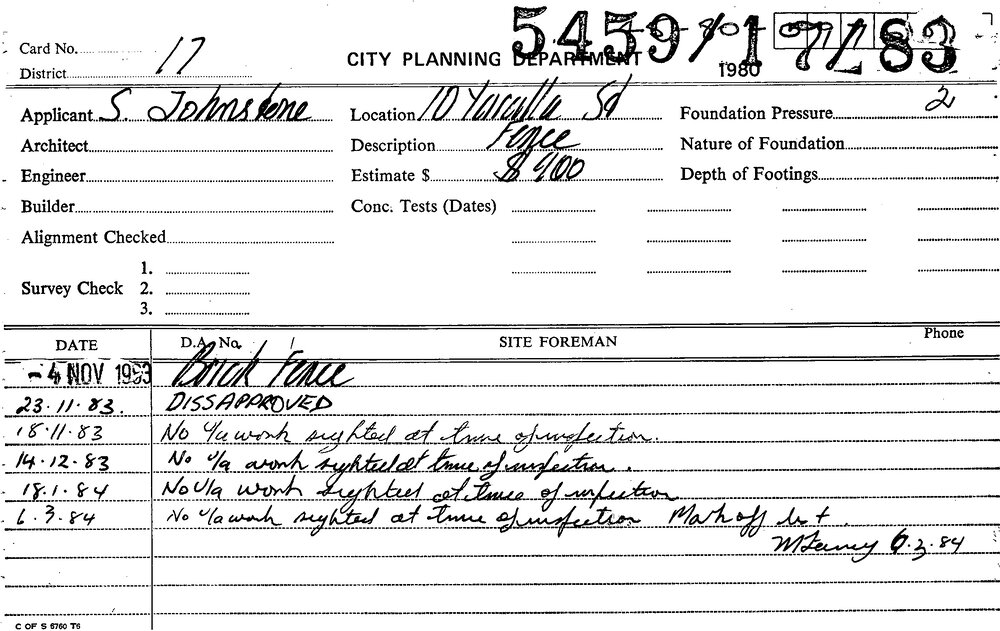 5459/17/83
Card No. 17
CITY PLANNING DEPARTMENT
1980
District
Applicant S. Johnstone Location 10 Yuculla Sd Foundation Pressure 2
Architect Description Fence Nature of Foundation
Engineer Estimate $ $ 900 Depth of Footings
Builder Conc. Tests (Dates)
Alignment Checked
1.
Survey Check 2.
3.
DATE D.A. No. SITE FOREMAN Phone
- 4 NOV 1983 Brick Fence
23.11.83. DISSAPPROVED
18.11.83 No u/a work sighted at time of inspection.
14.12.83 No u/a work sighted at time of inspection.
18.1.84 No u/a work sighted at time of inspection
6.3.84 No u/a work sighted at time of inspection Mark off list.
6.3.84
C OF S 6760 T6